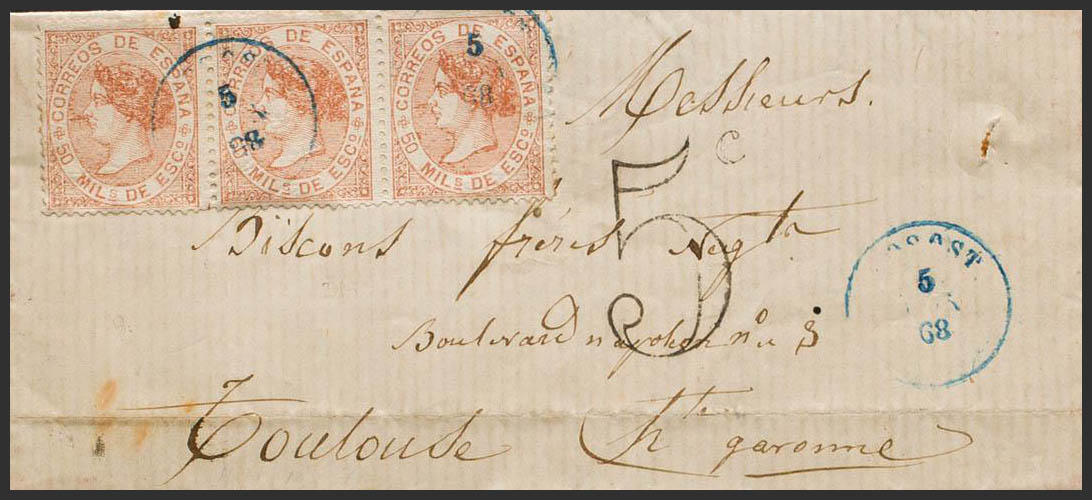 CORREOS DE ESPAÑA
50 MILS DE ESCO
5
68
CORREOS DE ESPAÑA
50 MILS DE ESCO
5
68
CORREOS DE ESPAÑA
50 MILS DE ESCO
Messieurs.
5 C
Biscons frères Negts
BOSOST
5
68
Boulevard napoleon no 3
Toulouse Hte garonne